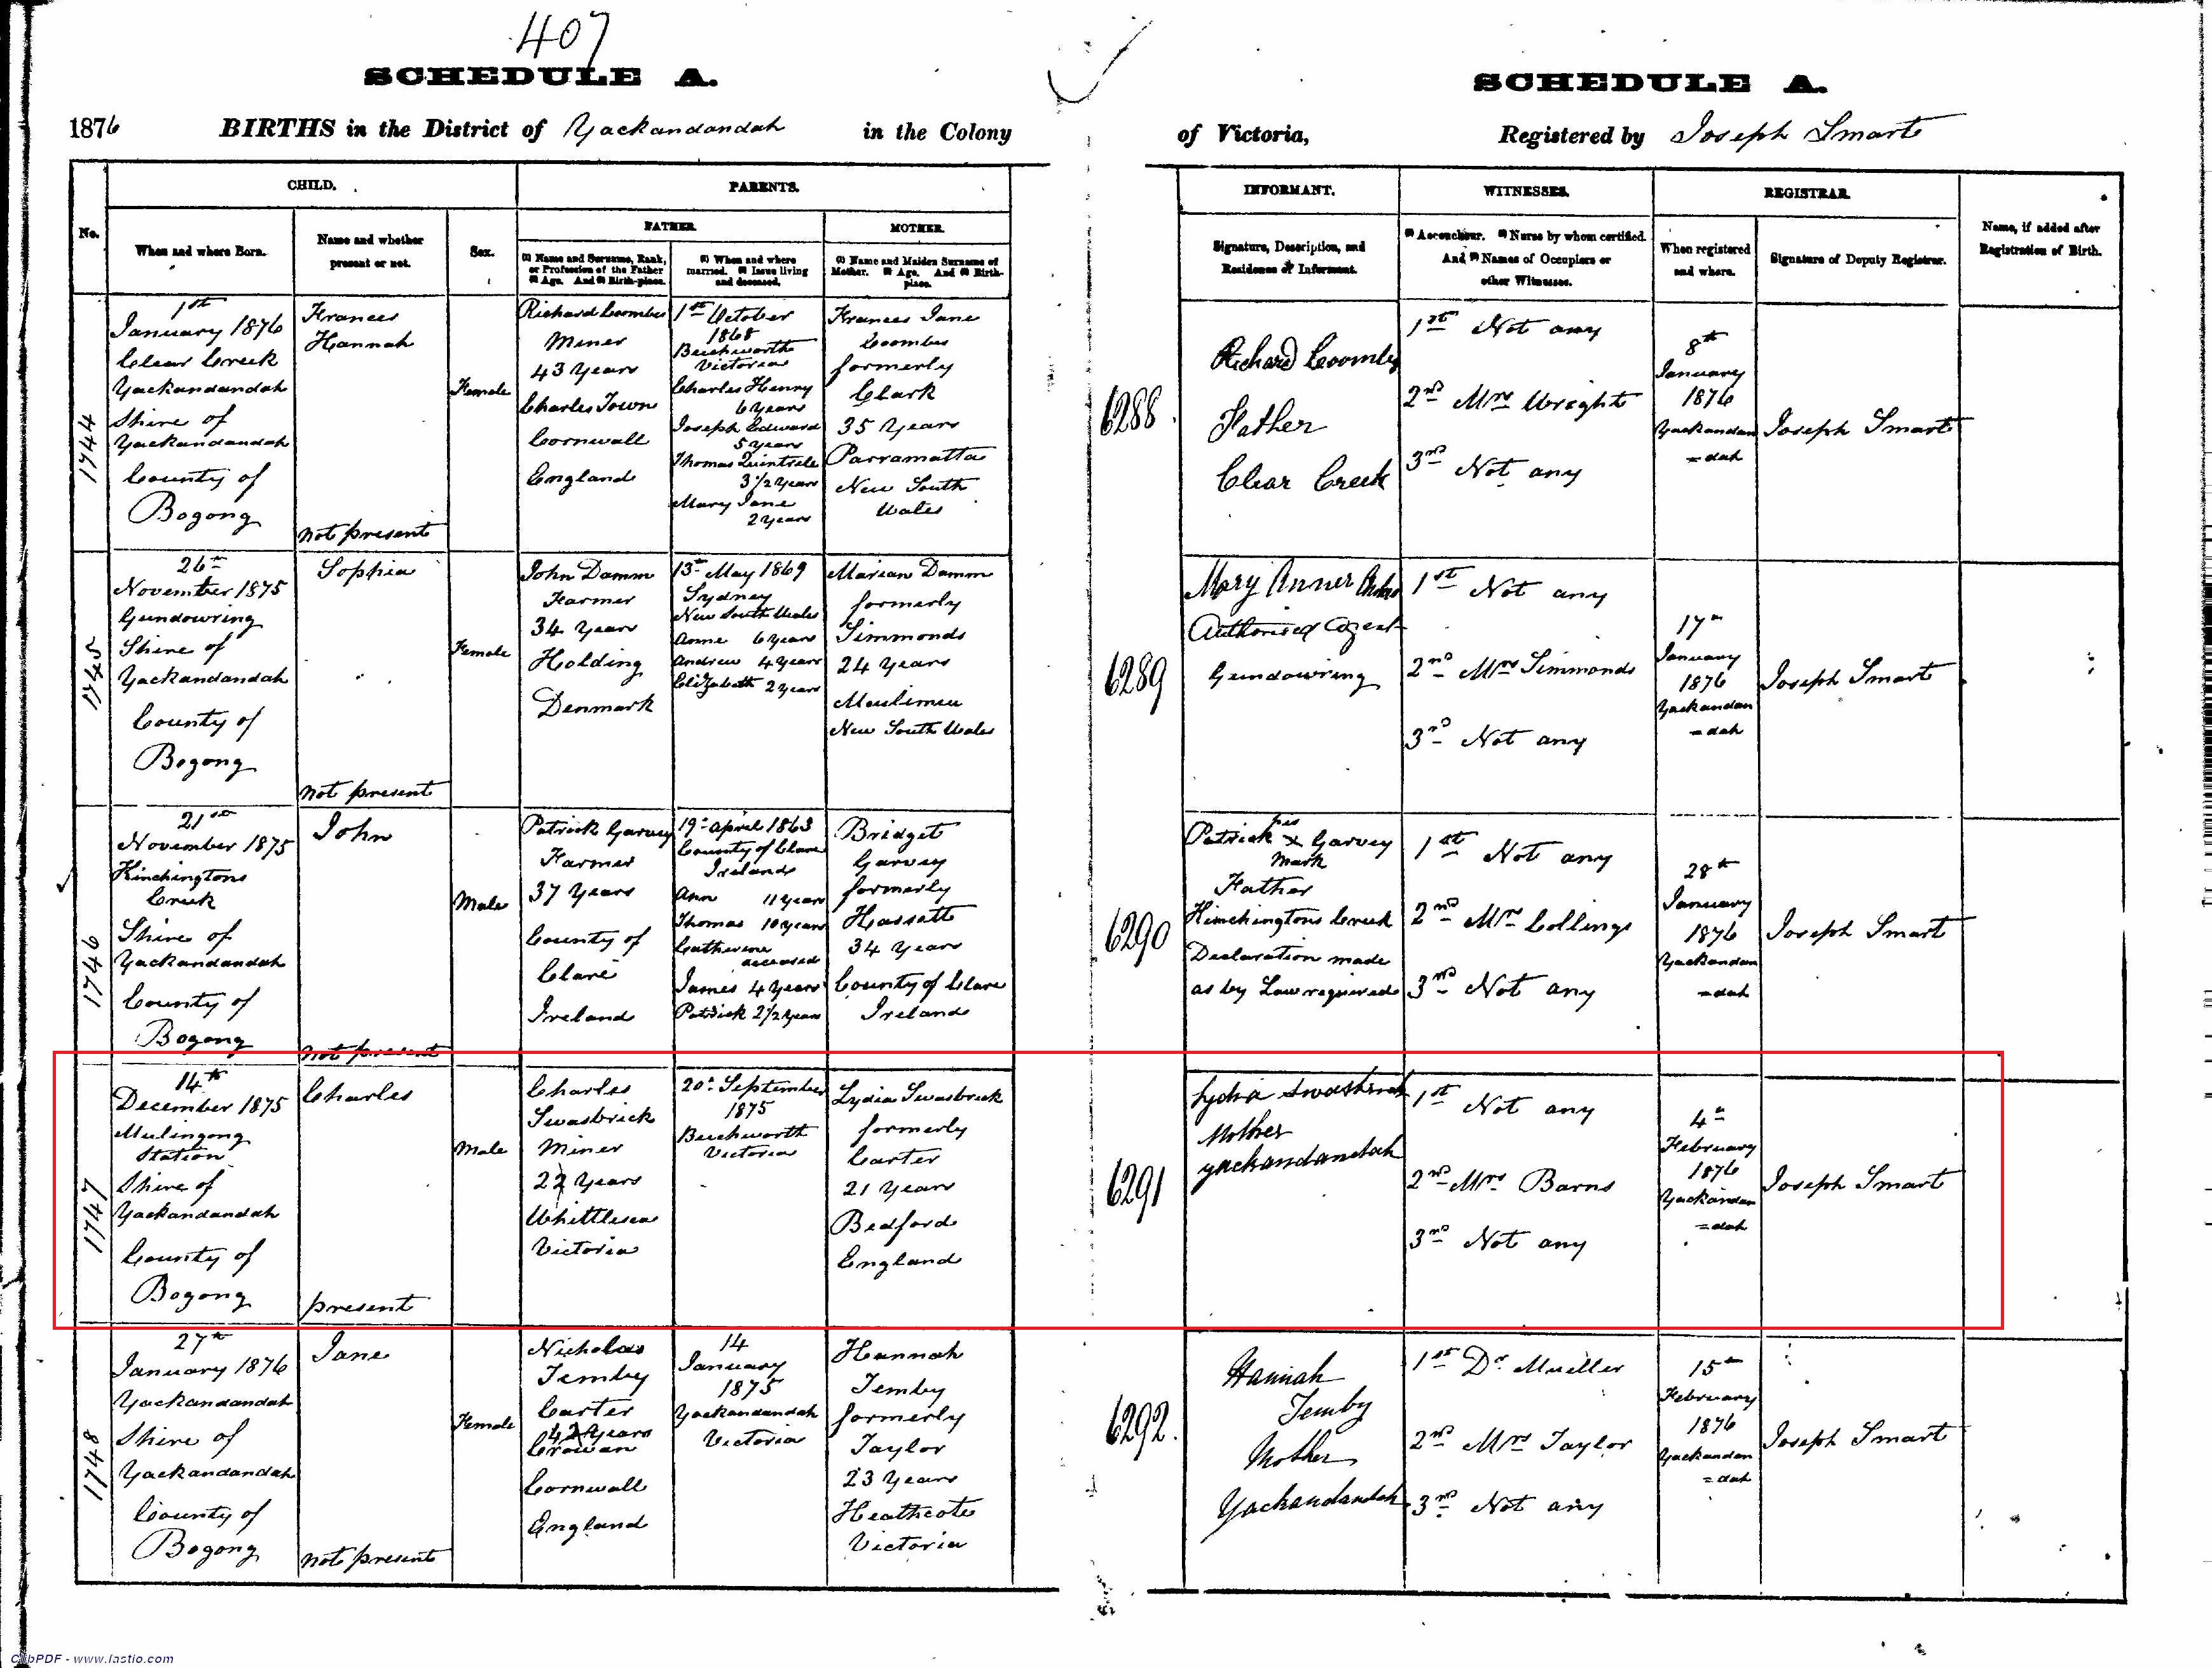 407
SCHEDULE A.
SCHEDULE A.
1876 BIRTHS in the District of Yackandandah in the Colony
of Victoria, Registered by Joseph Smart
CHILD.
PARENTS.
INFORMANT.
WITNESSES.
REGISTRAR.
No.
When and where Born.
Name and whether
present or not.
Sex.
FATHER.
(1) Name and Surname, Rank,
or Profession of the Father
(2) Age. And (3) Birth-place.
(1) When and where
married. (2) Issue living
and deceased.
MOTHER.
(1) Name and Maiden Surname of
Mother. (2) Age. And (3) Birth-
place.
Signature, Description, and
Residence of Informant.
(1) Accoucheur. (2) Nurse by whom certified.
And (3) Names of Occupiers or
other Witnesses.
When registered
and where.
Signature of Deputy Registrar.
Name, if added after
Registration of Birth.
1744
1st
January 1876
Clear Creek
Yackandandah
Shire of
Yackandandah
County of
Bogong
Frances
Hannah
not present
Female
Richard Coombes
Miner
43 Years
Charles Town
Cornwall
England
1st October
1868
Beechworth
Victoria
Charles Henry
6 years
Joseph Edward
5 years
Thomas
3 1/2 years
Mary Jane
2 years
Frances Jane
Coombes
formerly
Clark
35 Years
Parramatta
New South
Wales
6288.
Richard Coombes
Father
Clear Creek
1st Not any
2nd Mrs Wright
3rd Not any
8th
January
1876
Yackandan
=dah
Joseph Smart
1745
26th
November 1875
Gundowring
Shire of
Yackandandah
County of
Bogong
Sophia
not present
Female
John Damm
Farmer
34 Years
Holding
Denmark
13th May 1869
Sydney
New South Wales
Anne 6 years
Andrew 4 years
Elizabeth 2 years
Marian Damm
formerly
Simmonds
24 Years
New South Wales
6289
Mary
Authorised Agent
Gundowring
1st Not any
2nd Mrs Simmonds
3rd Not any
17th
January
1876
Yackandan
=dah
Joseph Smart
1746
21st
November 1875
Hinchingtons
Creek
Shire of
Yackandandah
County of
Bogong
John
not present
Male
Patrick Garvey
Farmer
37 Years
County of
Clare
Ireland
19th April 1863
County of Clare
Ireland
Ann 11 years
Thomas 10 years
Catherine
deceased
James 4 years
Patrick 2 1/2 years
Bridget
Garvey
formerly
Hassett
34 Years
County of Clare
Ireland
6290
his
Patrick x Garvey
mark
Father
Hinchingtons Creek
Declaration made
as by Law required
1st Not any
2nd Mrs Collings
3rd Not any
28th
January
1876
Yackandan
=dah
Joseph Smart
1747
14th
December 1875
Mulingong
Station
Shire of
Yackandandah
County of
Bogong
Charles
present
Male
Charles
Swasbrick
Miner
22 Years
Whittlesea
Victoria
20th September
1875
Beechworth
Victoria
Lydia Swasbrick
formerly
Carter
21 Years
Bedford
England
6291
Lydia Swasbrick
Mother
Yackandandah
1st Not any
2nd Mrs Barns
3rd Not any
4th
February
1876
Yackandan
=dah
Joseph Smart
1748
27th
January 1876
Yackandandah
Shire of
Yackandandah
County of
Bogong
Jane
not present
Female
Nicholas
Temby
Carter
42 Years
Crowan
Cornwall
England
14
January
1875
Yackandandah
Victoria
Hannah
Temby
formerly
Taylor
23 Years
Heathcote
Victoria
6292.
Hannah
Temby
Mother
Yackandandah
1st Dr Mueller
2nd Mrs Taylor
3rd Not any
15th
February
1876
Yackandan
=dah
Joseph Smart
ClibPDF - www.fastio.com